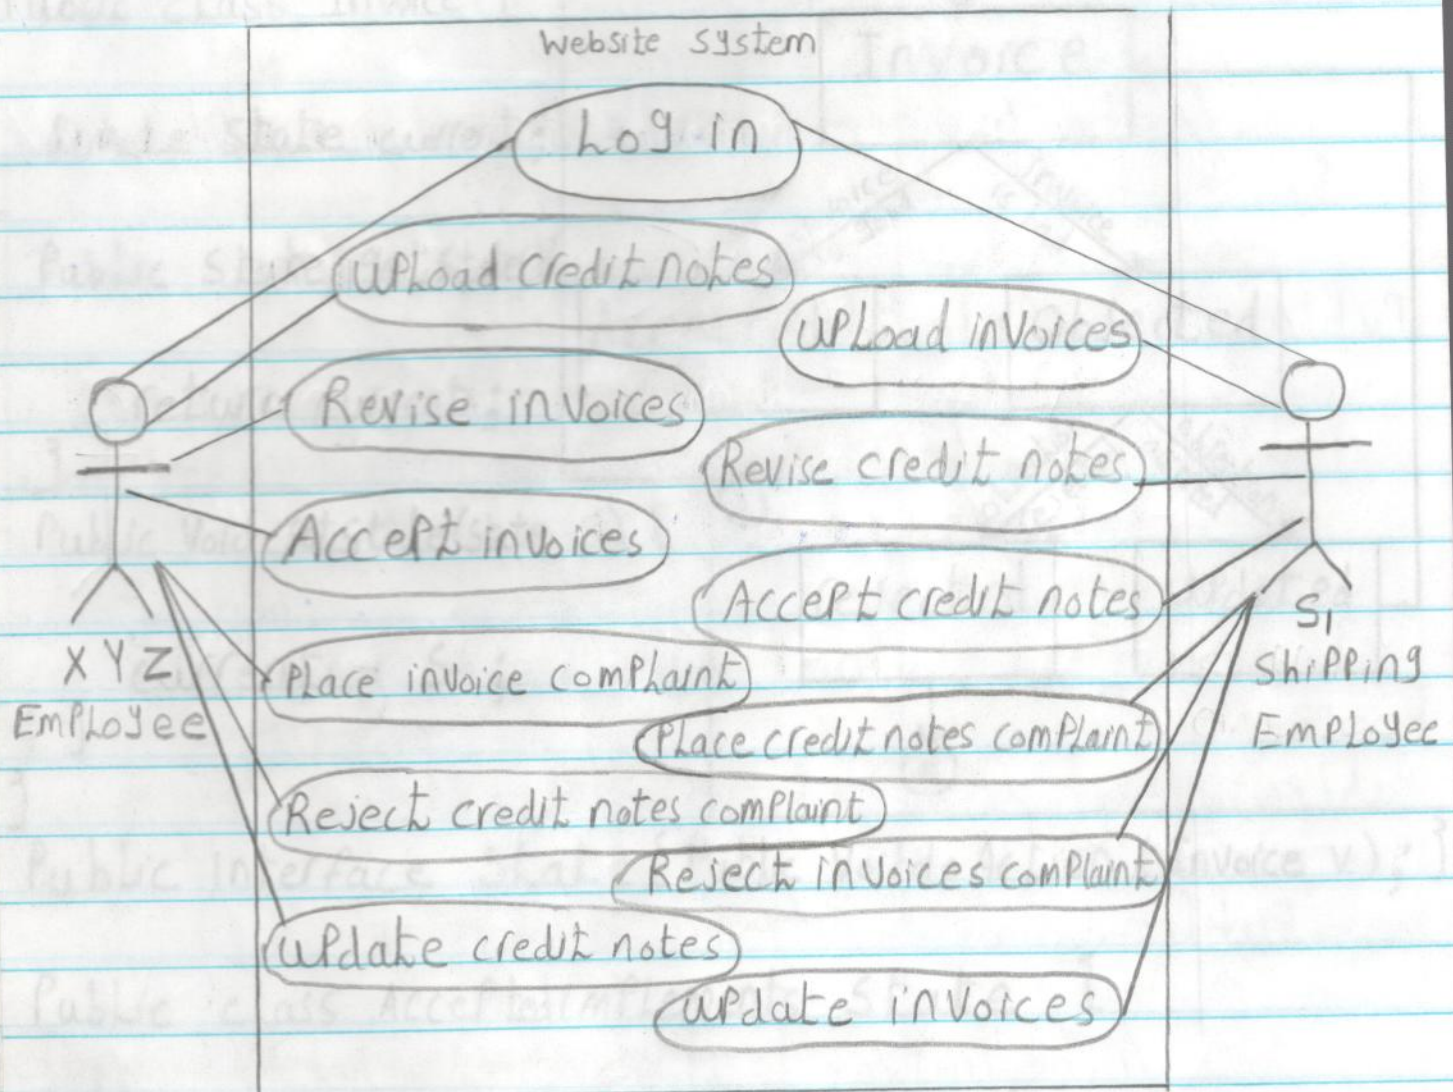 Website system
Log in
Upload credit notes
Upload invoices
Revise invoices
Revise credit notes
Accept invoices
Accept credit notes
XYZ
Employee
S1
Shipping
Employee
Place invoice complaint
Place credit notes complaint
Reject credit notes complaint
Reject invoices complaint
update credit notes
update invoices
Invoice